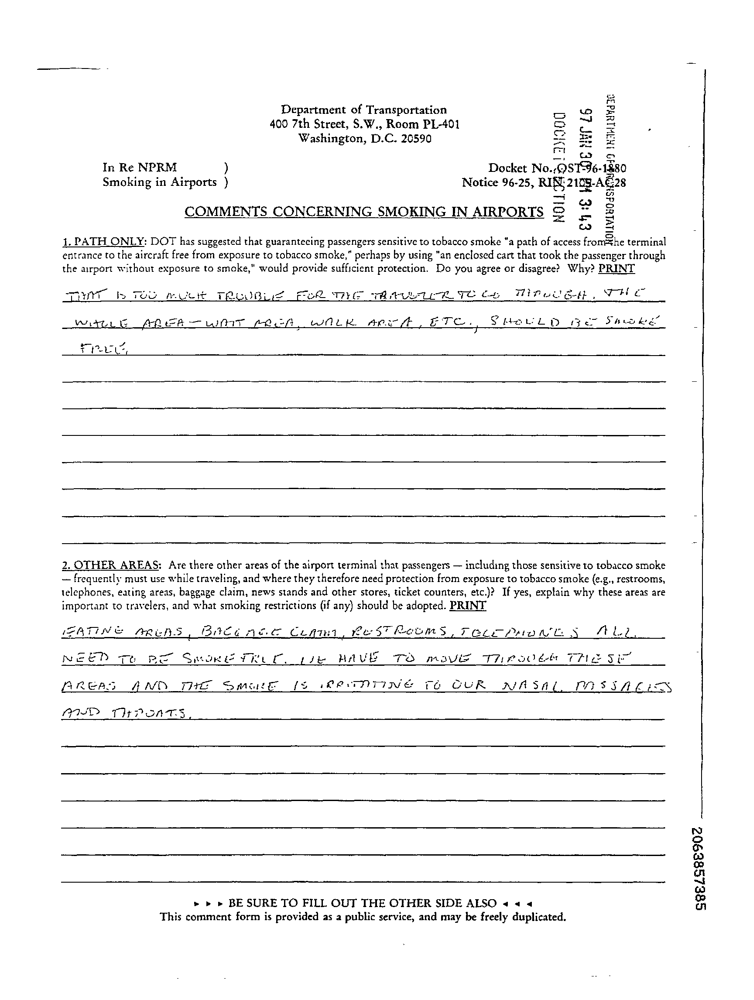 Department of Transportation
400 7th Street, S.W., Room PL-401
Washington, D.C. 20590
DEPARTMENT OF TRANSPORTATION
97 JAN 30 3:43
DOCKET SECTION
In Re NPRM )
Smoking in Airports )
Docket No. OST-96-1880
Notice 96-25, RIN 2105-AC28
COMMENTS CONCERNING SMOKING IN AIRPORTS
1. PATH ONLY: DOT has suggested that guaranteeing passengers sensitive to tobacco smoke "a path of access from the terminal
entrance to the aircraft free from exposure to tobacco smoke," perhaps by using "an enclosed cart that took the passenger through
the airport without exposure to smoke," would provide sufficient protection. Do you agree or disagree? Why? PRINT
THAT IS TOO MUCH TROUBLE FOR THE TRAVELER TO GO THROUGH. THE
WHOLE AREA - WAIT AREA, WALK AREA, ETC., SHOULD BE SMOKE
FREE.
2. OTHER AREAS: Are there other areas of the airport terminal that passengers — including those sensitive to tobacco smoke
— frequently must use while traveling, and where they therefore need protection from exposure to tobacco smoke (e.g., restrooms,
telephones, eating areas, baggage claim, news stands and other stores, ticket counters, etc.)? If yes, explain why these areas are
important to travelers, and what smoking restrictions (if any) should be adopted. PRINT
EATING AREAS, BAGGAGE CLAIM, RESTROOMS, TELEPHONES ALL
NEED TO BE SMOKE FREE. WE HAVE TO MOVE THROUGH THESE
AREAS AND THE SMOKE IS IRRITATING TO OUR NASAL PASSAGES
AND THROATS.
► ► ► BE SURE TO FILL OUT THE OTHER SIDE ALSO ◄ ◄ ◄
This comment form is provided as a public service, and may be freely duplicated.
2063857385